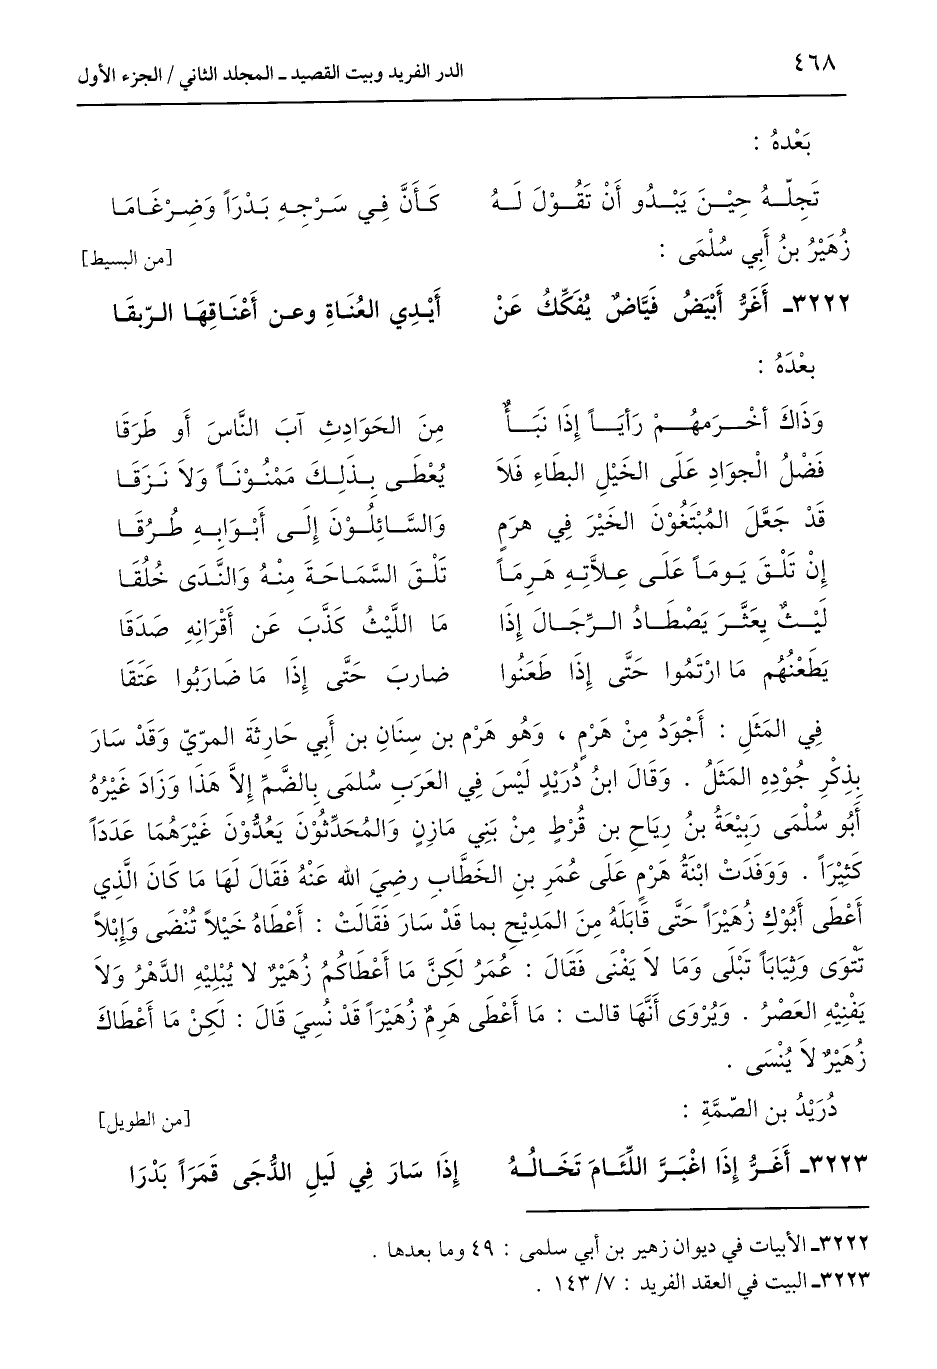 ٤٦٨ الدر الفريد وبيت القصيد ـ المجلد الثاني / الجزء الأول
بَعْدهُ :
تَجِلّـهُ حِيْـنَ يَبْـدُو أَنْ تَقُـوْلَ لَـهُ كَـأَنَّ فِي سَـرْجِـهِ بَـدْرَاً وَضِـرْغَامَـا
زُهَيْرُ بنُ أَبِي سُلْمَى : [من البسيط]
٣٢٢٢ـ أَغَرُّ أَبْيَضُ فَيَّاضٌ يُفَكِّكُ عَنْ أَيْـدِي العُنَـاةِ وعـن أَعْنَـاقِهَـا الـرّبقَـا
بعْدَهُ :
وَذَاكَ أخْـرَمهُـمْ رَأيَـاً إِذَا نَبَـأٌ مِنَ الحَوَادِثِ آبَ النَّاسَ أَو طَرَقَا
فَضْلُ الْجوَادِ عَلَى الخَيْلِ البطَاءِ فَلاَ يُعْطَـى بِـذَلِـكَ مَمْنُـوْنَـاً وَلاَ نَـزَقَـا
قَدْ جَعَّلَ المُبْتَغُوْنَ الخَيْرَ فِي هرَمٍ وَالسَّـائِلُـوْنَ إِلَـى أَبْـوَابِـهِ طُـرُقَـا
إِنْ تَلْـقَ يَـومَـاً عَلَـى عِـلاَّتِـهِ هَـرِمَـاً تَلْـقَ السَّمَـاحَـةَ مِنْـهُ وَالنَّـدَى خُلُقَـا
لَيْـثٌ بِعَثَّـرَ يَصْطَـادُ الـرِّجَـالَ إِذَا مَا اللَّيْثُ كَذَّبَ عَن أَقْرَانِهِ صَدَقَا
يَطعَنْهُم مَا ارْتَمُوا حَتَّى إِذَا طَعَنُوا ضاربَ حَتَّى إِذَا مَا ضَارَبُوا عَتَقَا
فِي المَثَلِ : أَجْوَدُ مِنْ هَرِمٍ ، وَهُو هَرْم بن سِنَانِ بن أَبِي حَارِثَةَ المرّيّ وَقَدْ سَارَ
بِذِكْرِ جُوْدِهِ المَثَلُ . وَقَالَ ابنُ دُرَيْدٍ لَيْسَ فِي العَرَبِ سُلمَى بِالضَّمِّ إِلاَّ هَذَا وَزَادَ غَيْرُهُ
أَبُو سُلْمَى رَبِيْعَةُ بنُ رِيَاحِ بن قُرْطٍ مِنْ بَنِي مَازِنٍ وَالمُحَدِّثُوْنَ يَعُدُّوْنَ غَيْرَهُمَا عَدَدَاً
كَثِيْرَاً . وَوَفَدَتْ ابْنَةُ هَرَمٍ عَلَى عُمَرِ بنِ الخَطَّابِ رضِيَ الله عَنْهُ فَقَالَ لَهَا مَا كَانَ الَّذِي
أَعْطَى أَبُوْكِ زُهَيْرَاً حَتَّى قَابَلَهُ مِنَ المَدِيْحِ بما قَدْ سَارَ فَقَالَتْ : أَعْطَاهُ خَيْلاً تُنْضَى وَإِبْلاً
تَتْوَى وَثِيَابَاً تَبْلَى وَمَا لا يَفْنَى فَقَالَ : عُمَرُ لَكِنَّ مَا أَعْطَاكُمُ زُهَيْرٌ لا يُبْلِيْهِ الدَّهْرُ وَلاَ
يَفْنِيْهِ العَصْرُ . وَيُرْوَى أَنَّهَا قالت : مَا أَعْطَى هَرِمٌ زُهَيْرَاً قَدْ نُسِيَ قَالَ : لَكِنْ مَا أَعْطَاكَ
زُهَيْرٌ لاَ يُنْسَى .
دُرَيْدُ بن الصِّمَّةِ : [من الطويل]
٣٢٢٣ـ أَغَـرُّ إِذَا اغْبَـرَّ اللِّئَـامَ تَخَـالُـهُ إِذَا سَارَ فِي لَيلِ الدُّجَى قَمَرَاً بَدْرَا
٣٢٢٢ـ الأبيات في ديوان زهير بن أبي سلمى : ٤٩ وما بعدها .
٣٢٢٣ـ البيت في العقد الفريد : ٧/ ١٤٣ .